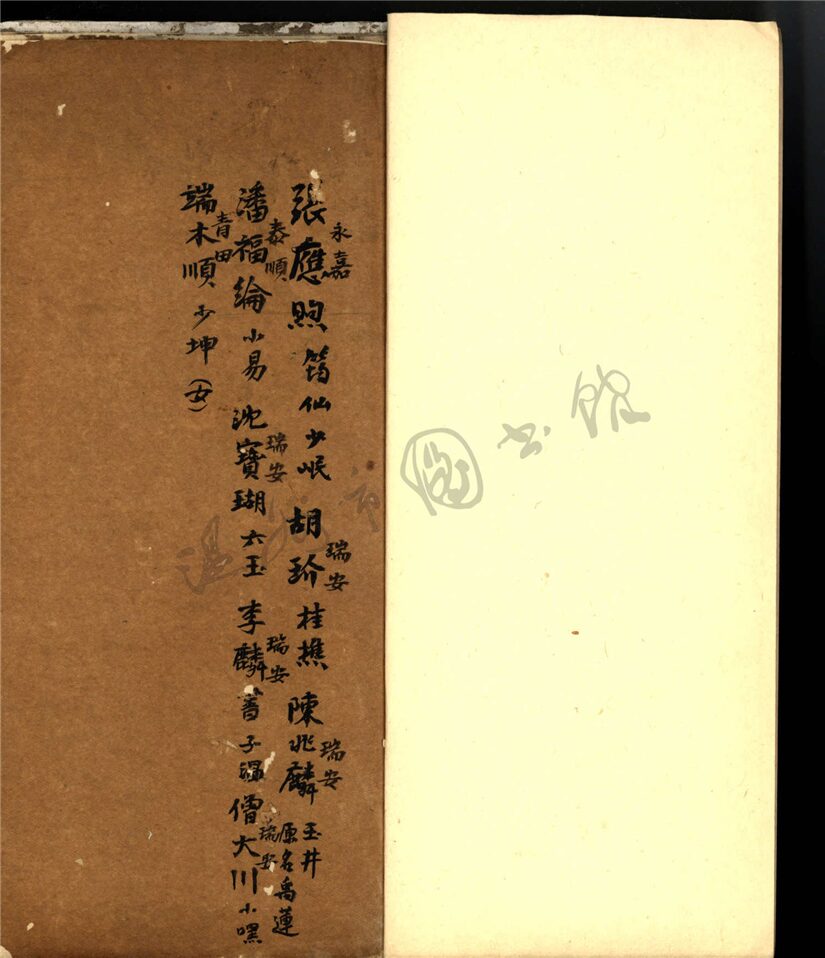 張應煦 永嘉 筠仙 少岷 胡玠 瑞安 桂樵 陳兆麟 瑞安 玉井 原名禹蓮
潘福綸 泰順 小易 沈寶瑚 瑞安 六玉 李麟 瑞安 子 僧大川 瑞安 小嘿
端木順 青田 少坤（女）
市圖書館